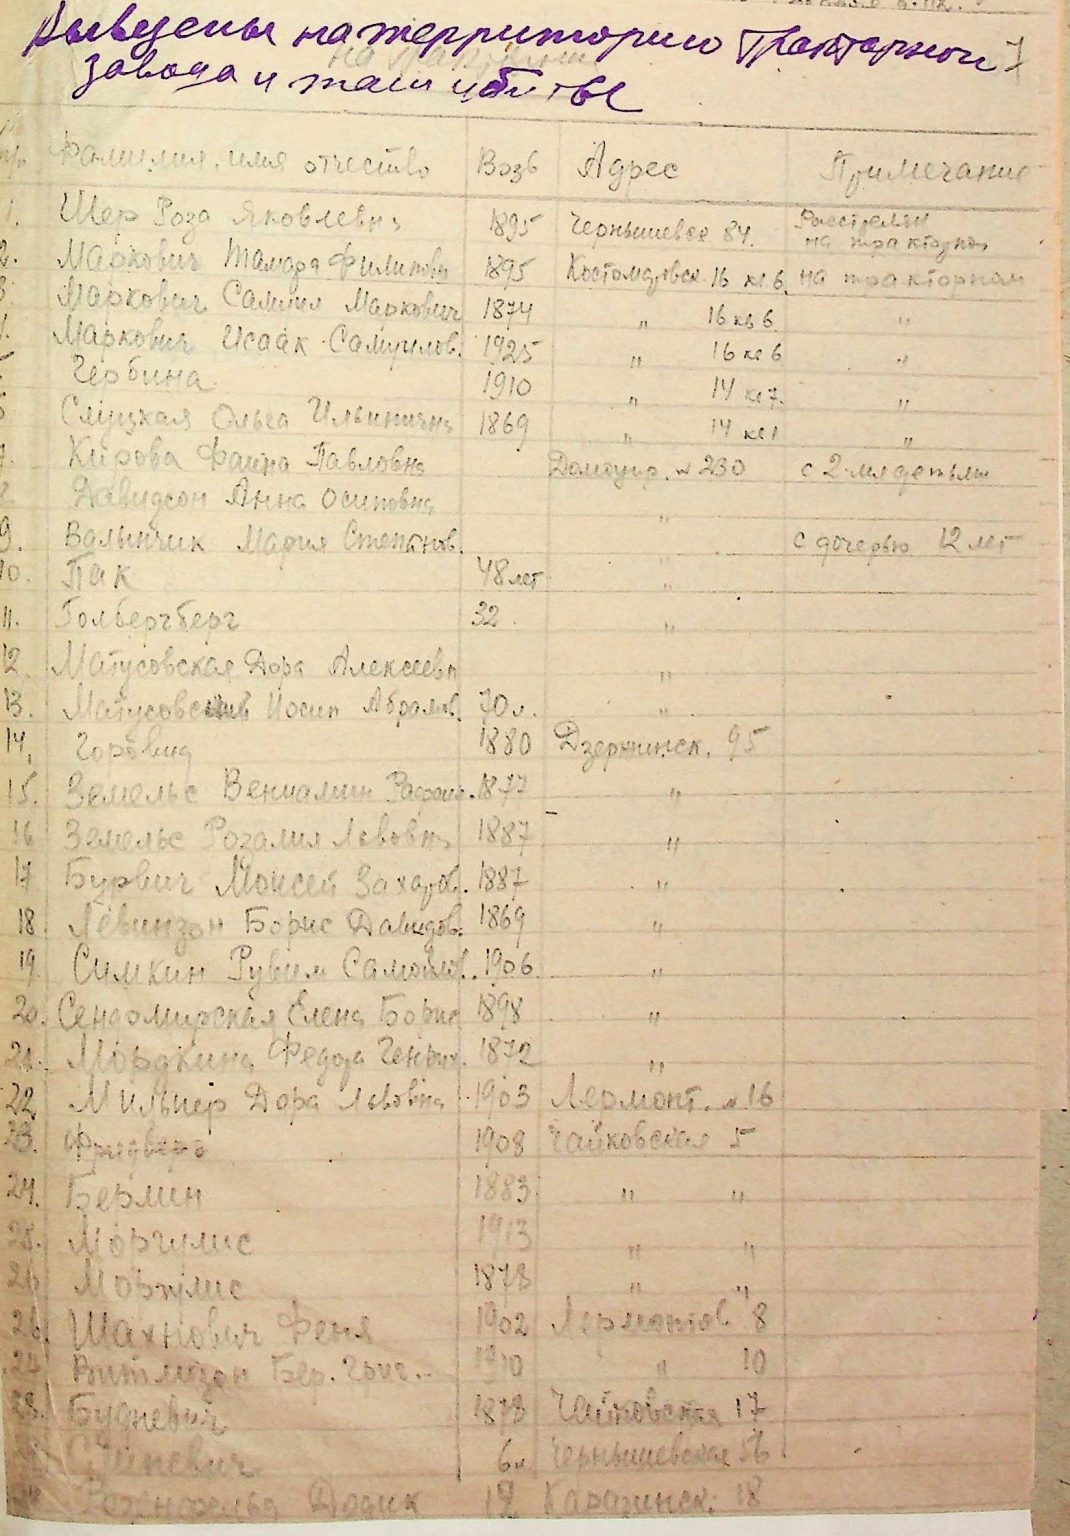 Вывезены на территорию Тракторного 7
завода и там убитые
Фамилия, имя отчество Возв Адрес Примечание
1. Шер Роза Яковлевна 1895 Чернышевск 84. Расстрелян на тракторном
2. Маркович Тамара Филипповн 1895 Костомаровск. 16 кв 6. на тракторном
3. Маркович Самуил Маркович 1874 " 16 кв 6. "
Маркович Исаак Самуилов. 1925 " 16 кв 6 "
Чербина 1910 " 14 кв 7. "
Слуцкая Ольга Ильинична 1869 " 14 кв 1 "
7. Кирова Фаина Павловна 230 с 2-мя детьми
8. Давидсон Анна Осиповна "
9. Валынчик Мария Степанов. " с дочерью 12 лет
10. Пак 48 лет "
11. Голбергберг 32. "
12. Матусовская Дора Алексеевн "
13. Матусовский Иосип Абрамов. 70 л. "
14. Горовиц 1880 Дзержинск. 95
15. Земельс Вениамин 1877 "
16 Земельс Розалия Львовна 1887 "
17 Бурвич Моисей Захаров. 1887 "
18. Левинзон Борис Давидов. 1869 "
19 Симкин Рувим Самойлов. 1906. "
20. Сендомирская Елена Борис 1898 "
21. Мордкина Федора Генрих. 1872 "
22 Мильнер Дора Львовна 1903 Лермонт. 16
23. 1908 Чайковская 5
24. Бермин 1883. " "
25. Моргулис 1913 " "
26 Моргулис 1878 " "
26. Шахнович Феня 1902 Лермонтов 8
27 Бер. Григ. 1910 " 10
28. Будневич 1878 Чайковская 17
6 л. Чернышевская 56
Розенфельд Додик 19 Каразинск. 18